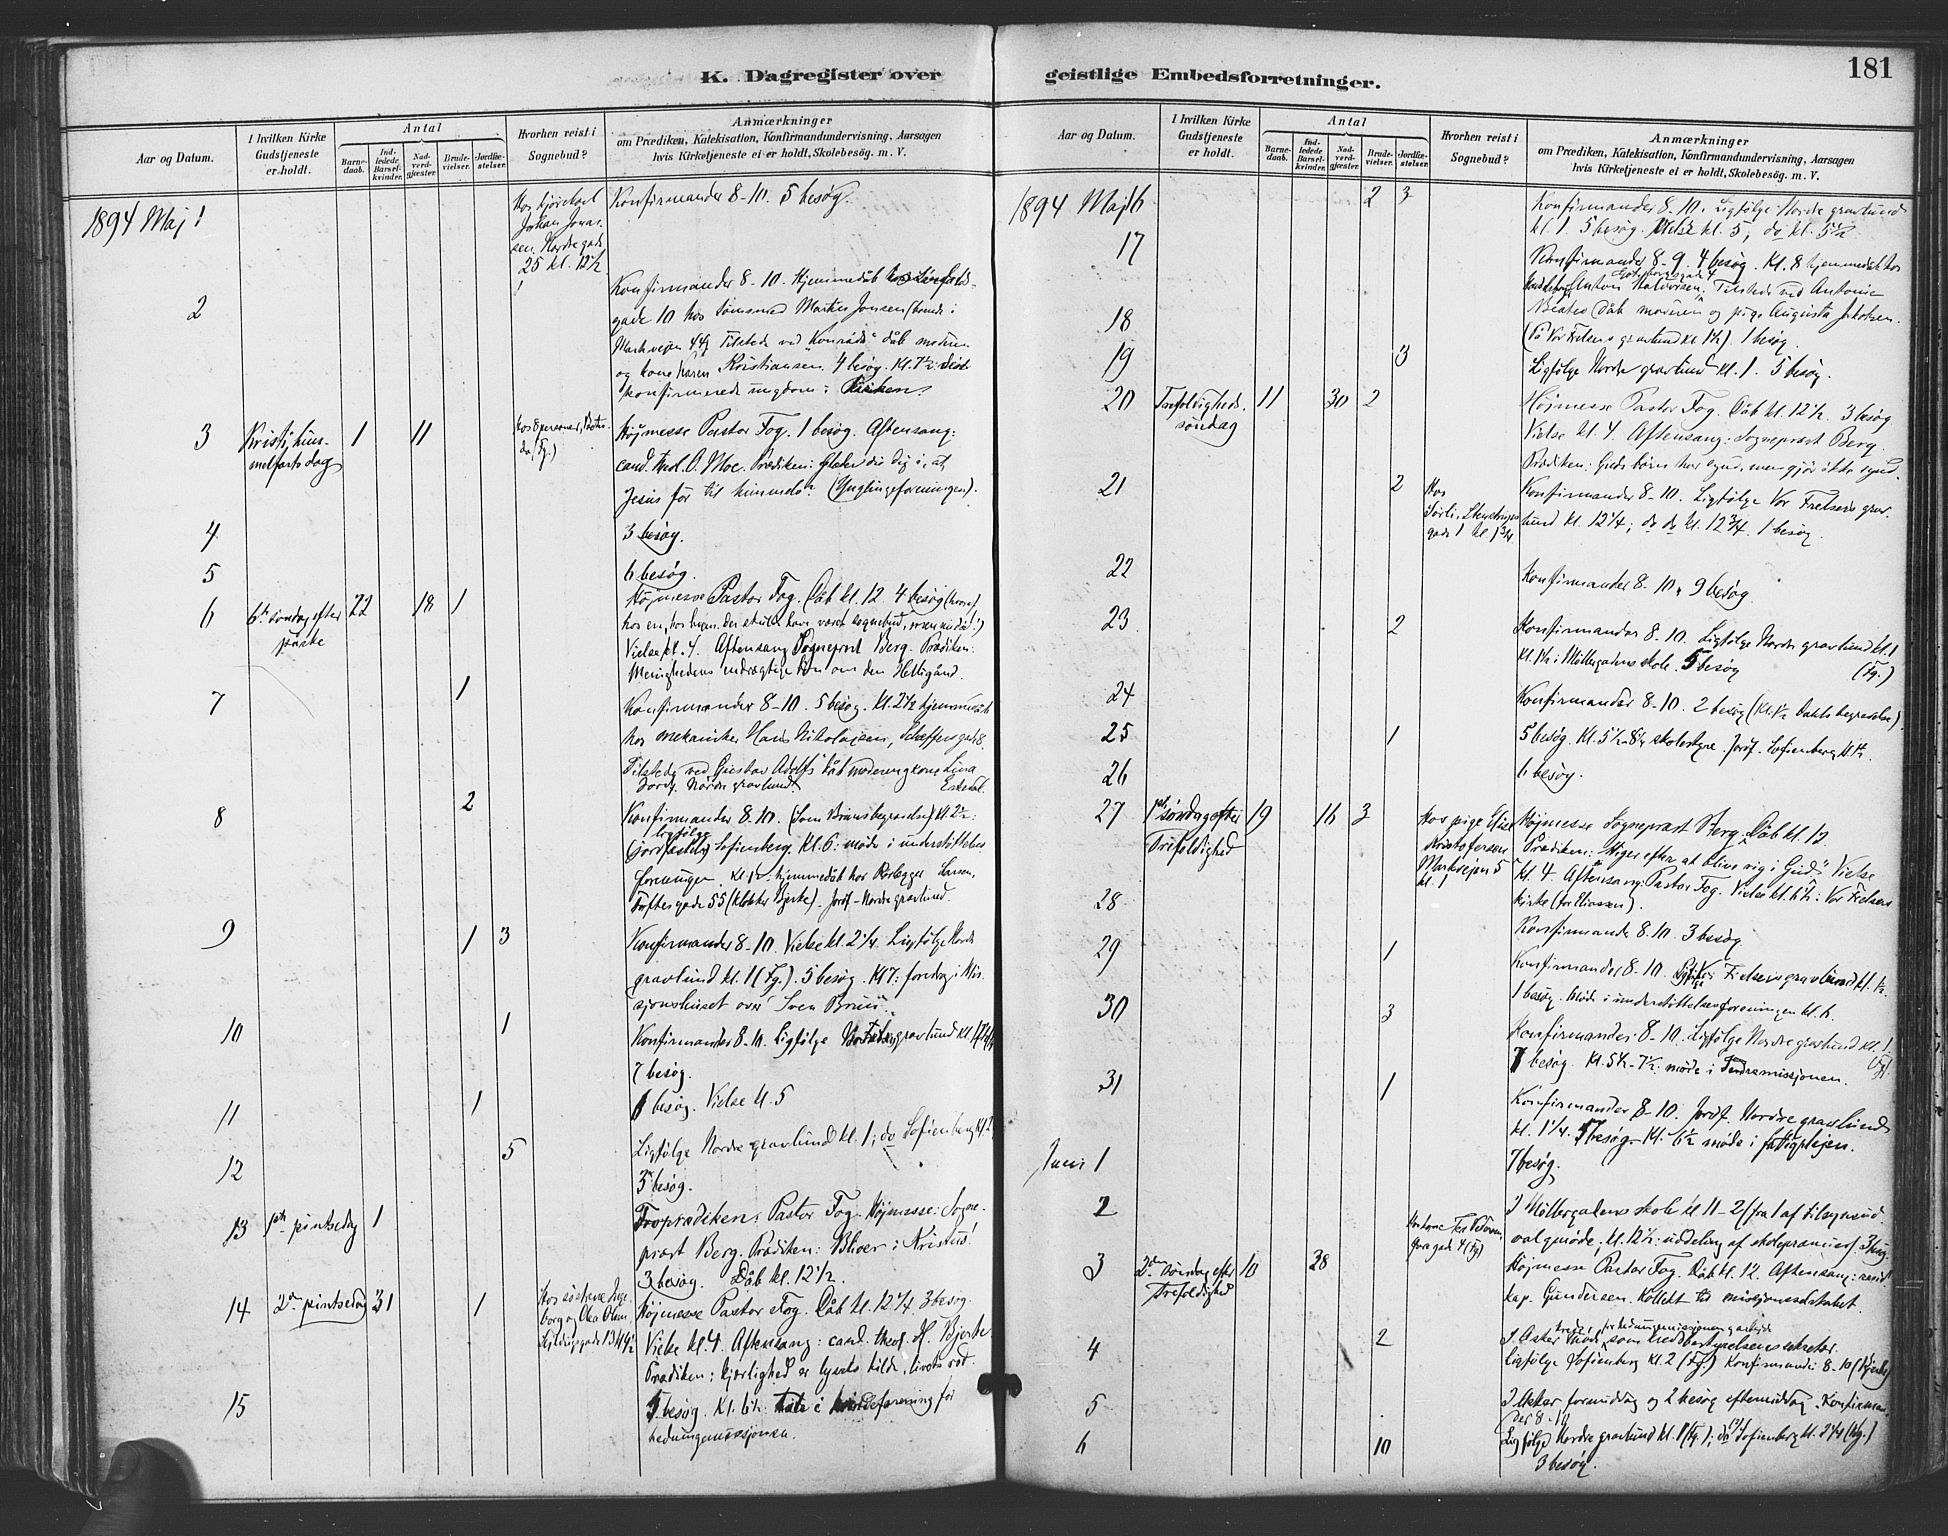 K. Dagregister over
geistlige Embedsforretninger.
181
Aar og Datum.
I hvilken Kirke Gudstjeneste er holdt.
Antal
Barnedaab.
Indledede Barselkvinder.
Nadverdgjæster.
Brudevielser.
Jordfæstelser.
Hvorhen reist i Sognebud?
Anmærkninger
om Prædiken, Katekisation, Konfirmandundervisning, Aarsagen
hvis Kirketjeneste ei er holdt, Skolebesøg. m. V.
1894 Maj 1
Johan
Nordre gade
25 kl. 12½
Konfirmander 8-10. 5 besøg.
2
Konfirmander 8-10. Hjemmedåb hos
gade 10 hos Martin Jonsen
Markvejen Tilstede ved dåb
og kone Karen Kristiansen. 4 besøg. Kl. 7½
konfirmerede ungdom i kirken.
3 Kristi him- 1 11
melfarts dag
Højmesse Pastor Fog. 1 besøg. Aftensang:
cand. theol. O. Moe. Prædiken: Glæder du dig i, at
Jesus før til himmels? (Ynglingeforeningen).
4
3 besøg.
5
6 besøg.
6 6te søndag efter 22 18 1
påske
Højmesse Pastor Fog. Dåb kl. 12. 4 besøg
Vielse kl. 4. Aftensang Sogneprest Berg. Prædiken:
Menighedens endrægtige bøn om den Helligånd.
7 1
Konfirmander 8-10. 5 besøg. Kl. 2½ hjemmedåb
hos mekaniker Hans Nikolajsen, gade 8.
Tilstede ved Gustav Adolfs dåb
Jordf. Nordre gravlund.
8 2
Konfirmander 8-10. (Sven Bruns begravelse) kl. 2½:
ligfølge
(jordfæstelse) Sofienberg. Kl. 6: møde i understøttelses-
foreningen. hjemmedåb hos Larsen,
Toftes gade 55 (klokker Bjerke). Jordf. Nordre gravlund.
9 1 3
Konfirmander 8-10. Vielse kl. 2¼. Ligfølge Nordre
gravlund kl. 1 (Fg.). 5 besøg. Kl 7: foredrag i Mis-
sjonshuset over Sven Brun.
10 1
Konfirmander 8-10. Ligfølge gravlund kl.
7 besøg.
11 1
besøg. Vielse kl. 5
12 5
Ligfølge Nordre gravlund kl. 1; do Sofienberg kl. 2
5 besøg.
13 1ste pintsedag 1
Froprædiken: Pastor Fog. Højmesse: Sogne-
prest Berg. Prædiken: Bliver i Kristus!
3 besøg. Dåb kl. 12½.
14 2den pintsedag 31 1
Hos søstrene Inge-
borg og Olea Olsen
Højmesse Pastor Fog. Dåb kl. 12¼. 3 besøg.
Vielse kl. 4. Aftensang: cand. theol. H. Bjerke
Prædiken: kjærlighed er lysets kilde, livets rod.
15
5 besøg. Kl. 6½: Tale i kvindeforening for
hedningemissjonen.
Aar og Datum.
I hvilken Kirke Gudstjeneste er holdt.
Antal
Barnedaab.
Indledede Barselkvinder.
Nadverdgjæster.
Brudevielser.
Jordfæstelser.
Hvorhen reist i Sognebud?
Anmærkninger
om Prædiken, Katekisation, Konfirmandundervisning, Aarsagen
hvis Kirketjeneste ei er holdt, Skolebesøg. m. V.
1894 Maj 16 2 3
Konfirmander 8-10. Ligfølge Nordre gravlund
kl. 1. 5 besøg. Vielse kl. 5, do kl. 5½.
17
Konfirmander 8-9. 4 besøg. Kl. 8 hjemmedåb hos
Anton Halvorsen, Tilstede ved Antonie
Beates dåb moderen og pige Augusta Jakobsen.
18
(På Vor Frelsers gravlund kl 1½). 1 besøg.
19 3
Ligfølge Nordre gravlund kl. 1. 5 besøg.
20 Trefoldigheds- 11 30 2
søndag
Højmesse Pastor Fog. Dåb kl. 12½. 3 besøg
Vielse kl. 4. Aftensang: Sogneprest Berg.
Prædiken: Guds børn har synd, men gjør ikke synd.
21 2
Hos
gade 1 kl. 1¾
Konfirmander 8-10. Ligfølge Vor Frelsers grav-
lund kl. 12¼; do do kl. 12¾. 1 besøg.
22
Konfirmander 8-10. 9 besøg.
23 2
Konfirmander 8-10. Ligfølge Nordre gravlund kl. 1
Kl. 1½ i Møllergadens skole. 5 besøg (Fg.)
24
Konfirmander 8-10. 2 besøg (Kl. 1½ Dahls begravelse).
25 1
5 besøg. Kl. 5½-8½ skolestyre. Jordf. Sofienberg kl 1½.
26
6 besøg.
27 1ste søndag efter 19 16 3
Trefoldighed
Hos pige Elise
Kristofersen
Markvejen 5
kl. 1
Højmesse Sogneprest Berg. Dåb kl. 12.
Prædiken: Higer efter at blive rig i Gud! Vielse
kl. 4. Aftensang: Pastor Fog. Vielse kl. 6½: Vor Frelsers
kirke (for Eliassen).
28
Konfirmander 8-10. 3 besøg
29 1
Konfirmander 8-10. Vor Frelsers gravlund kl. 1½.
1 besøg. Møde i understøttelsesforeningen kl. 6.
30 3
Konfirmander 8-10. Ligfølge Nordre gravlund kl. 1.
7 besøg. Kl. 5½-7½: møde i Indremissjonen. (Fg).
31 1
Konfirmander 8-10. Jordf. Nordre gravlund
kl. 1¼. 5 besøg. Kl. 6½ møde i fattigplejen.
Juni 1
7 besøg.
2
I Møllergadens skole kl 11-2 (fra 1 af tilsynsud-
valgmøde, kl. 12½: uddeling af skolepræmier). 3 besøg.
3 2den søndag efter 10 28
Trefoldighed
Højmesse Pastor Fog. Dåb kl. 12. Aftensang: resid.
kap. Gundersen. Kollekt til missjonsselskabet.
4 2
I Asker som kredsbestyrelsens sekretær.
Ligfølge Sofienberg kl. 2 (Fg.) Konfirmander 8-10 (Bjerke)
5
I Asker formiddag og 2 besøg eftermiddag. Konfirman-
der 8-10
6 10
Ligfølge Nordre gravlund kl. 1 (Fg.); do Sofienberg kl. 2¼ (Fg.)
3 besøg.